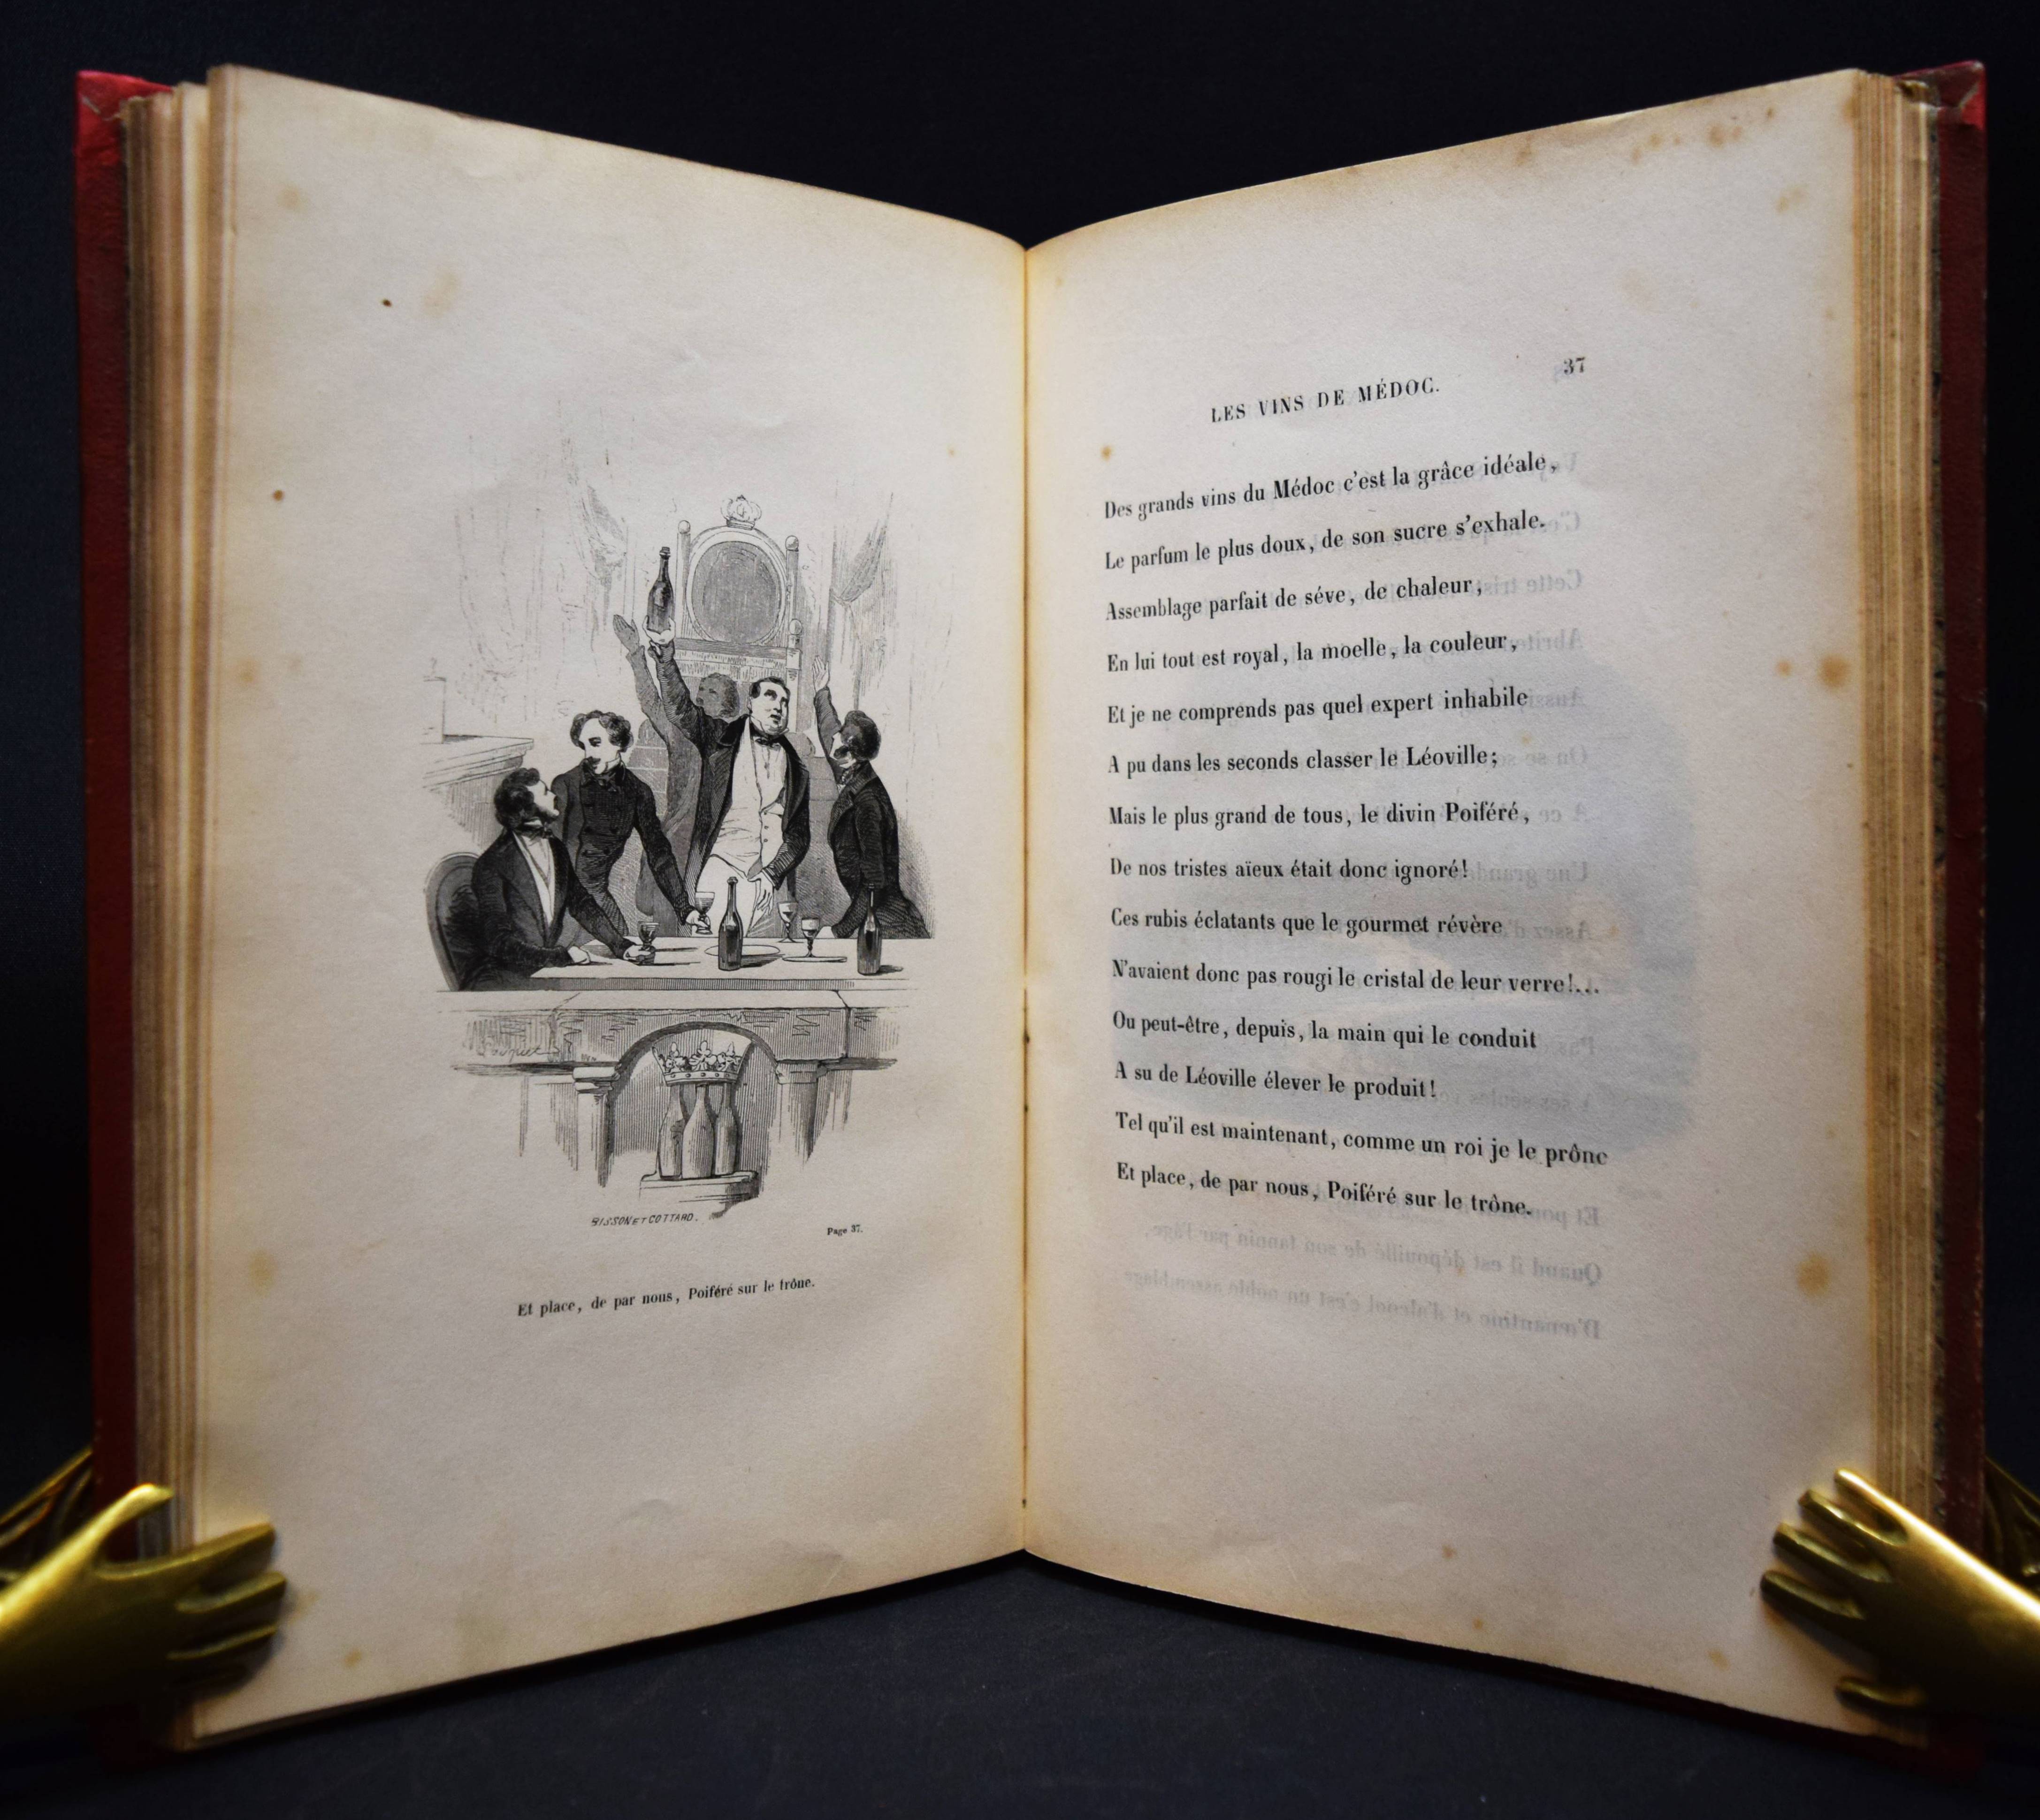 BISSON ET COTTARD.
Page 37.
Et place, de par nous, Poiféré sur le trône.
37
LES VINS DE MÉDOC.
Des grands vins du Médoc c'est la grâce idéale,
Le parfum le plus doux, de son sucre s'exhale.
Assemblage parfait de séve, de chaleur,
En lui tout est royal, la moelle, la couleur,
Et je ne comprends pas quel expert inhabile
A pu dans les seconds classer le Léoville;
Mais le plus grand de tous, le divin Poiféré,
De nos tristes aïeux était donc ignoré!
Ces rubis éclatants que le gourmet révère
N'avaient donc pas rougi le cristal de leur verre!...
Ou peut-être, depuis, la main qui le conduit
A su de Léoville élever le produit!
Tel qu'il est maintenant, comme un roi je le prône
Et place, de par nous, Poiféré sur le trône.